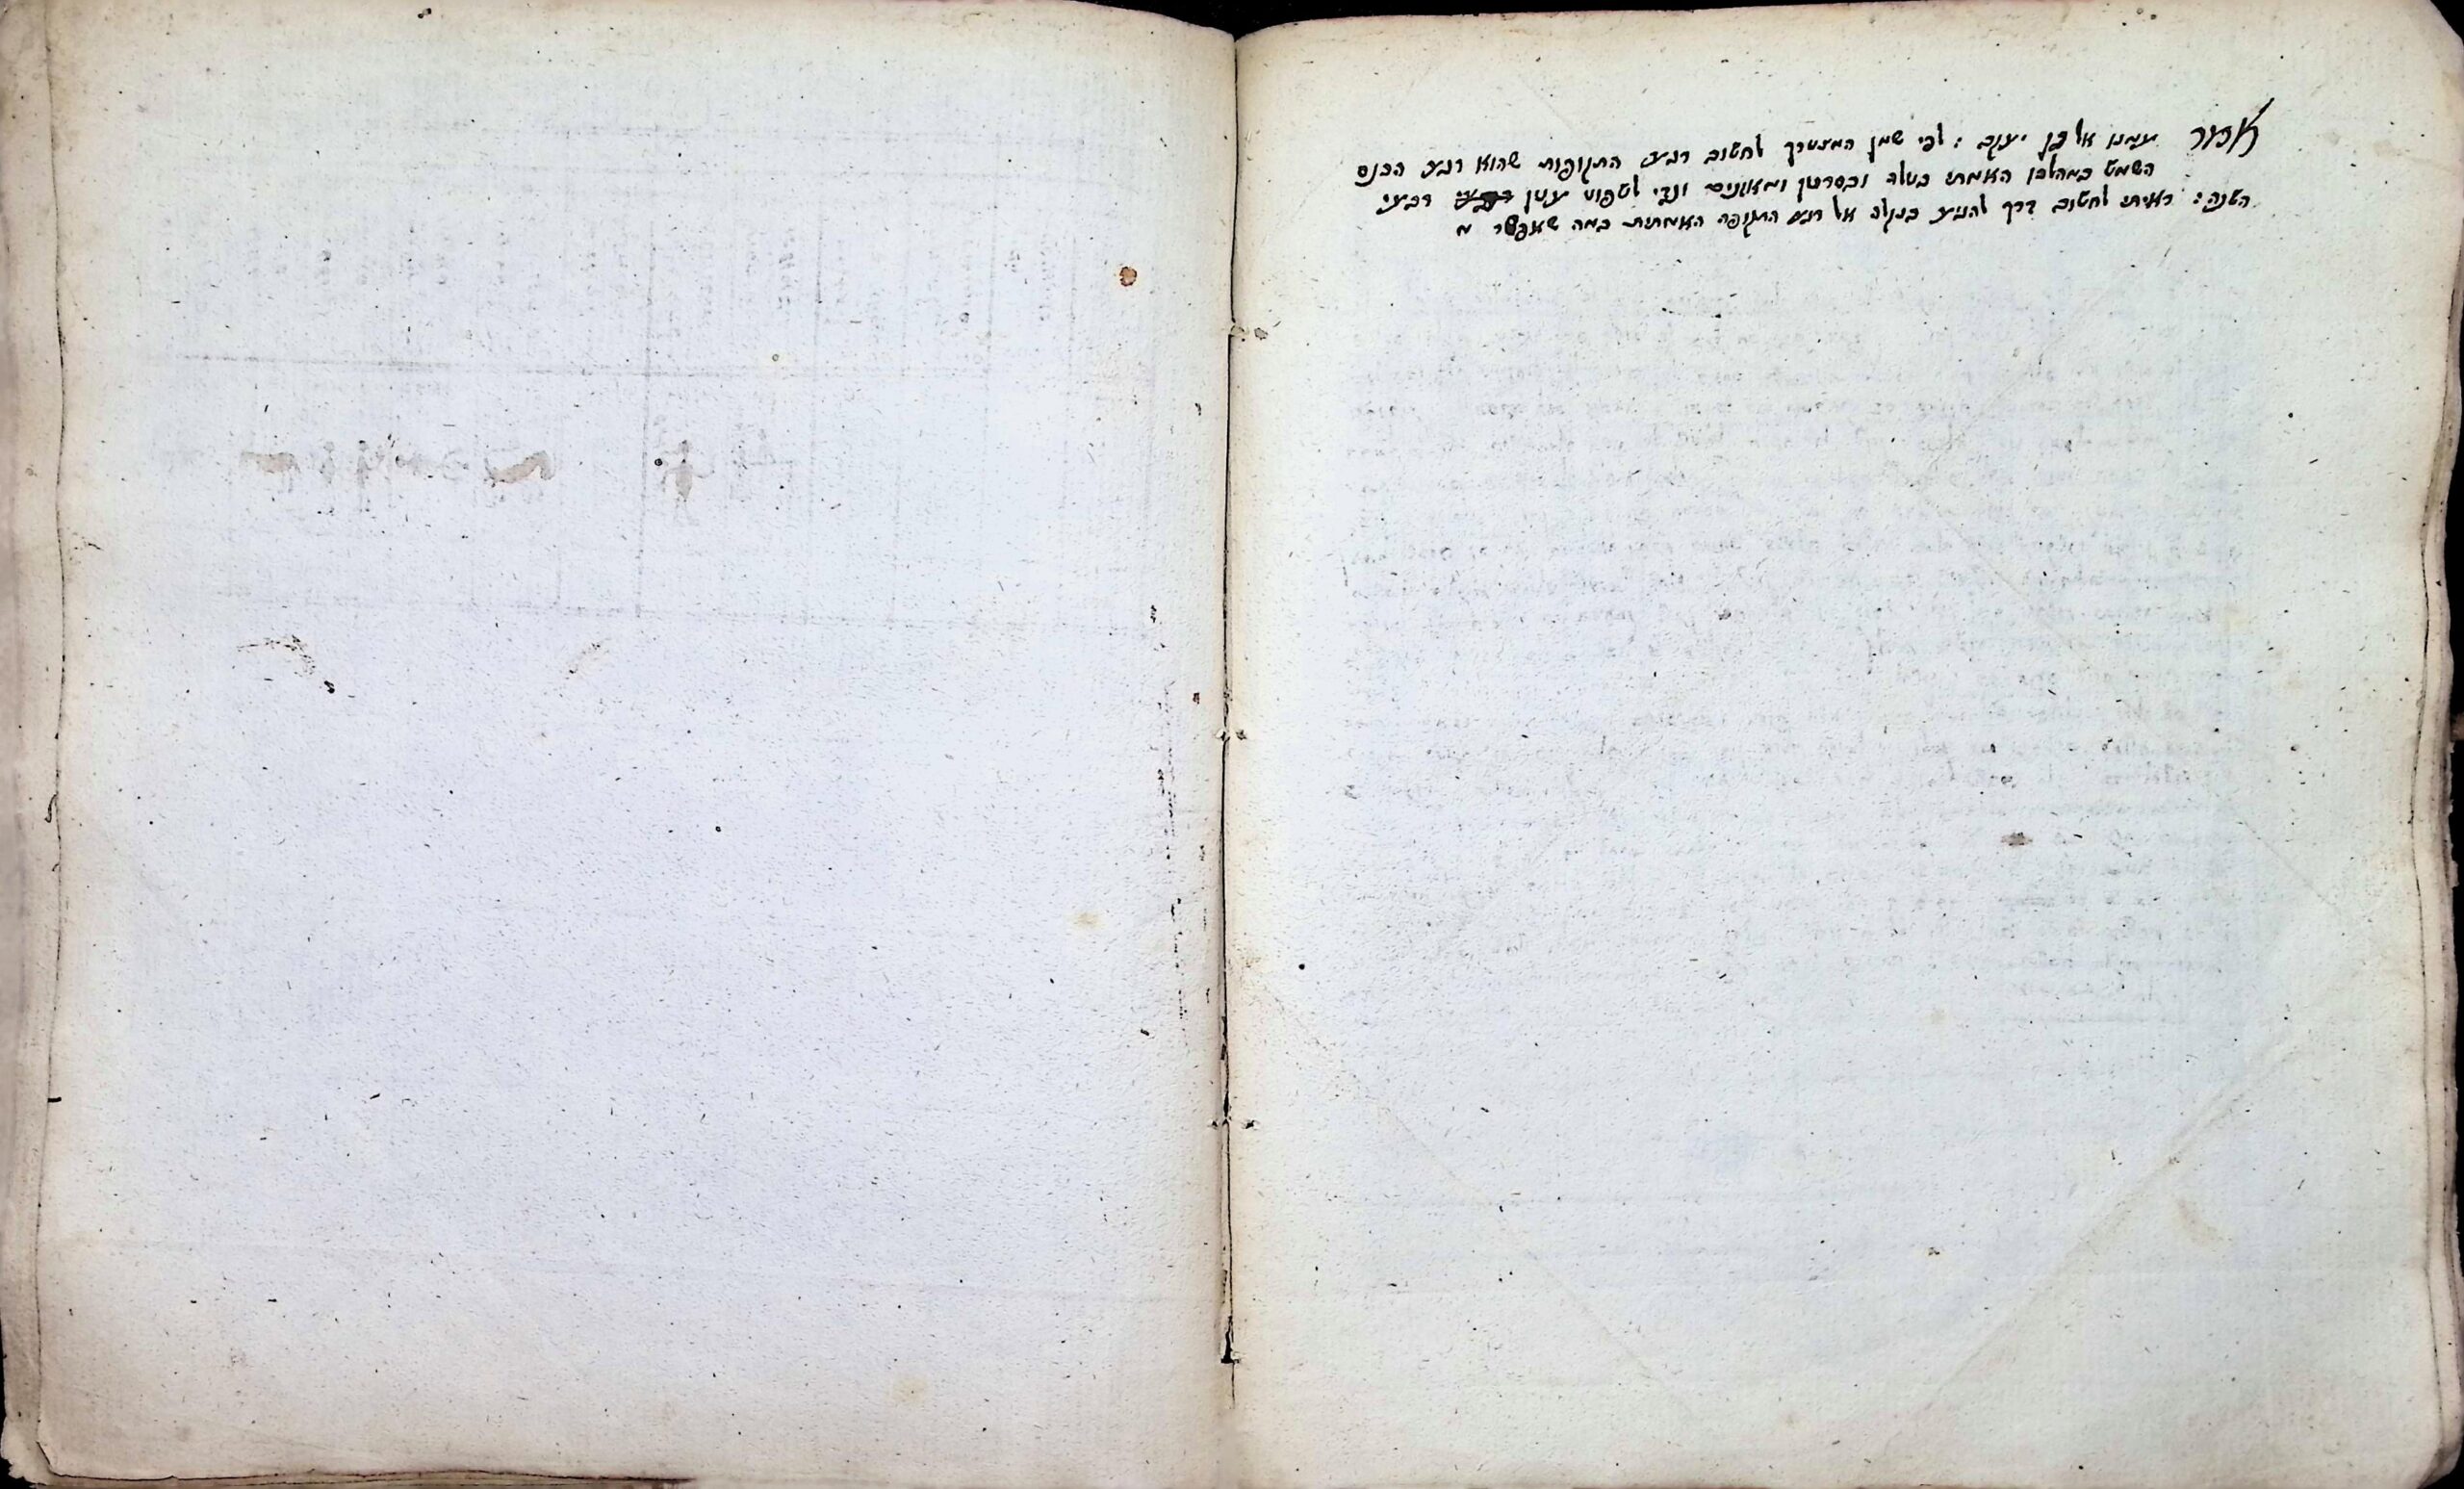 אמר עמנואל בן יעקב : לפי שמן המצטרך לחשוב רגעי התקופות שהוא רגע הכנס
השמש במהלכו האמתי בטלה ובסרטן ומאזנים וגדי לשפוט עתן רבעי
השנה : ראיתי לחשוב דרך להגיע בנקלה אל רגע התקופה האמתית כמה שאפשר מ